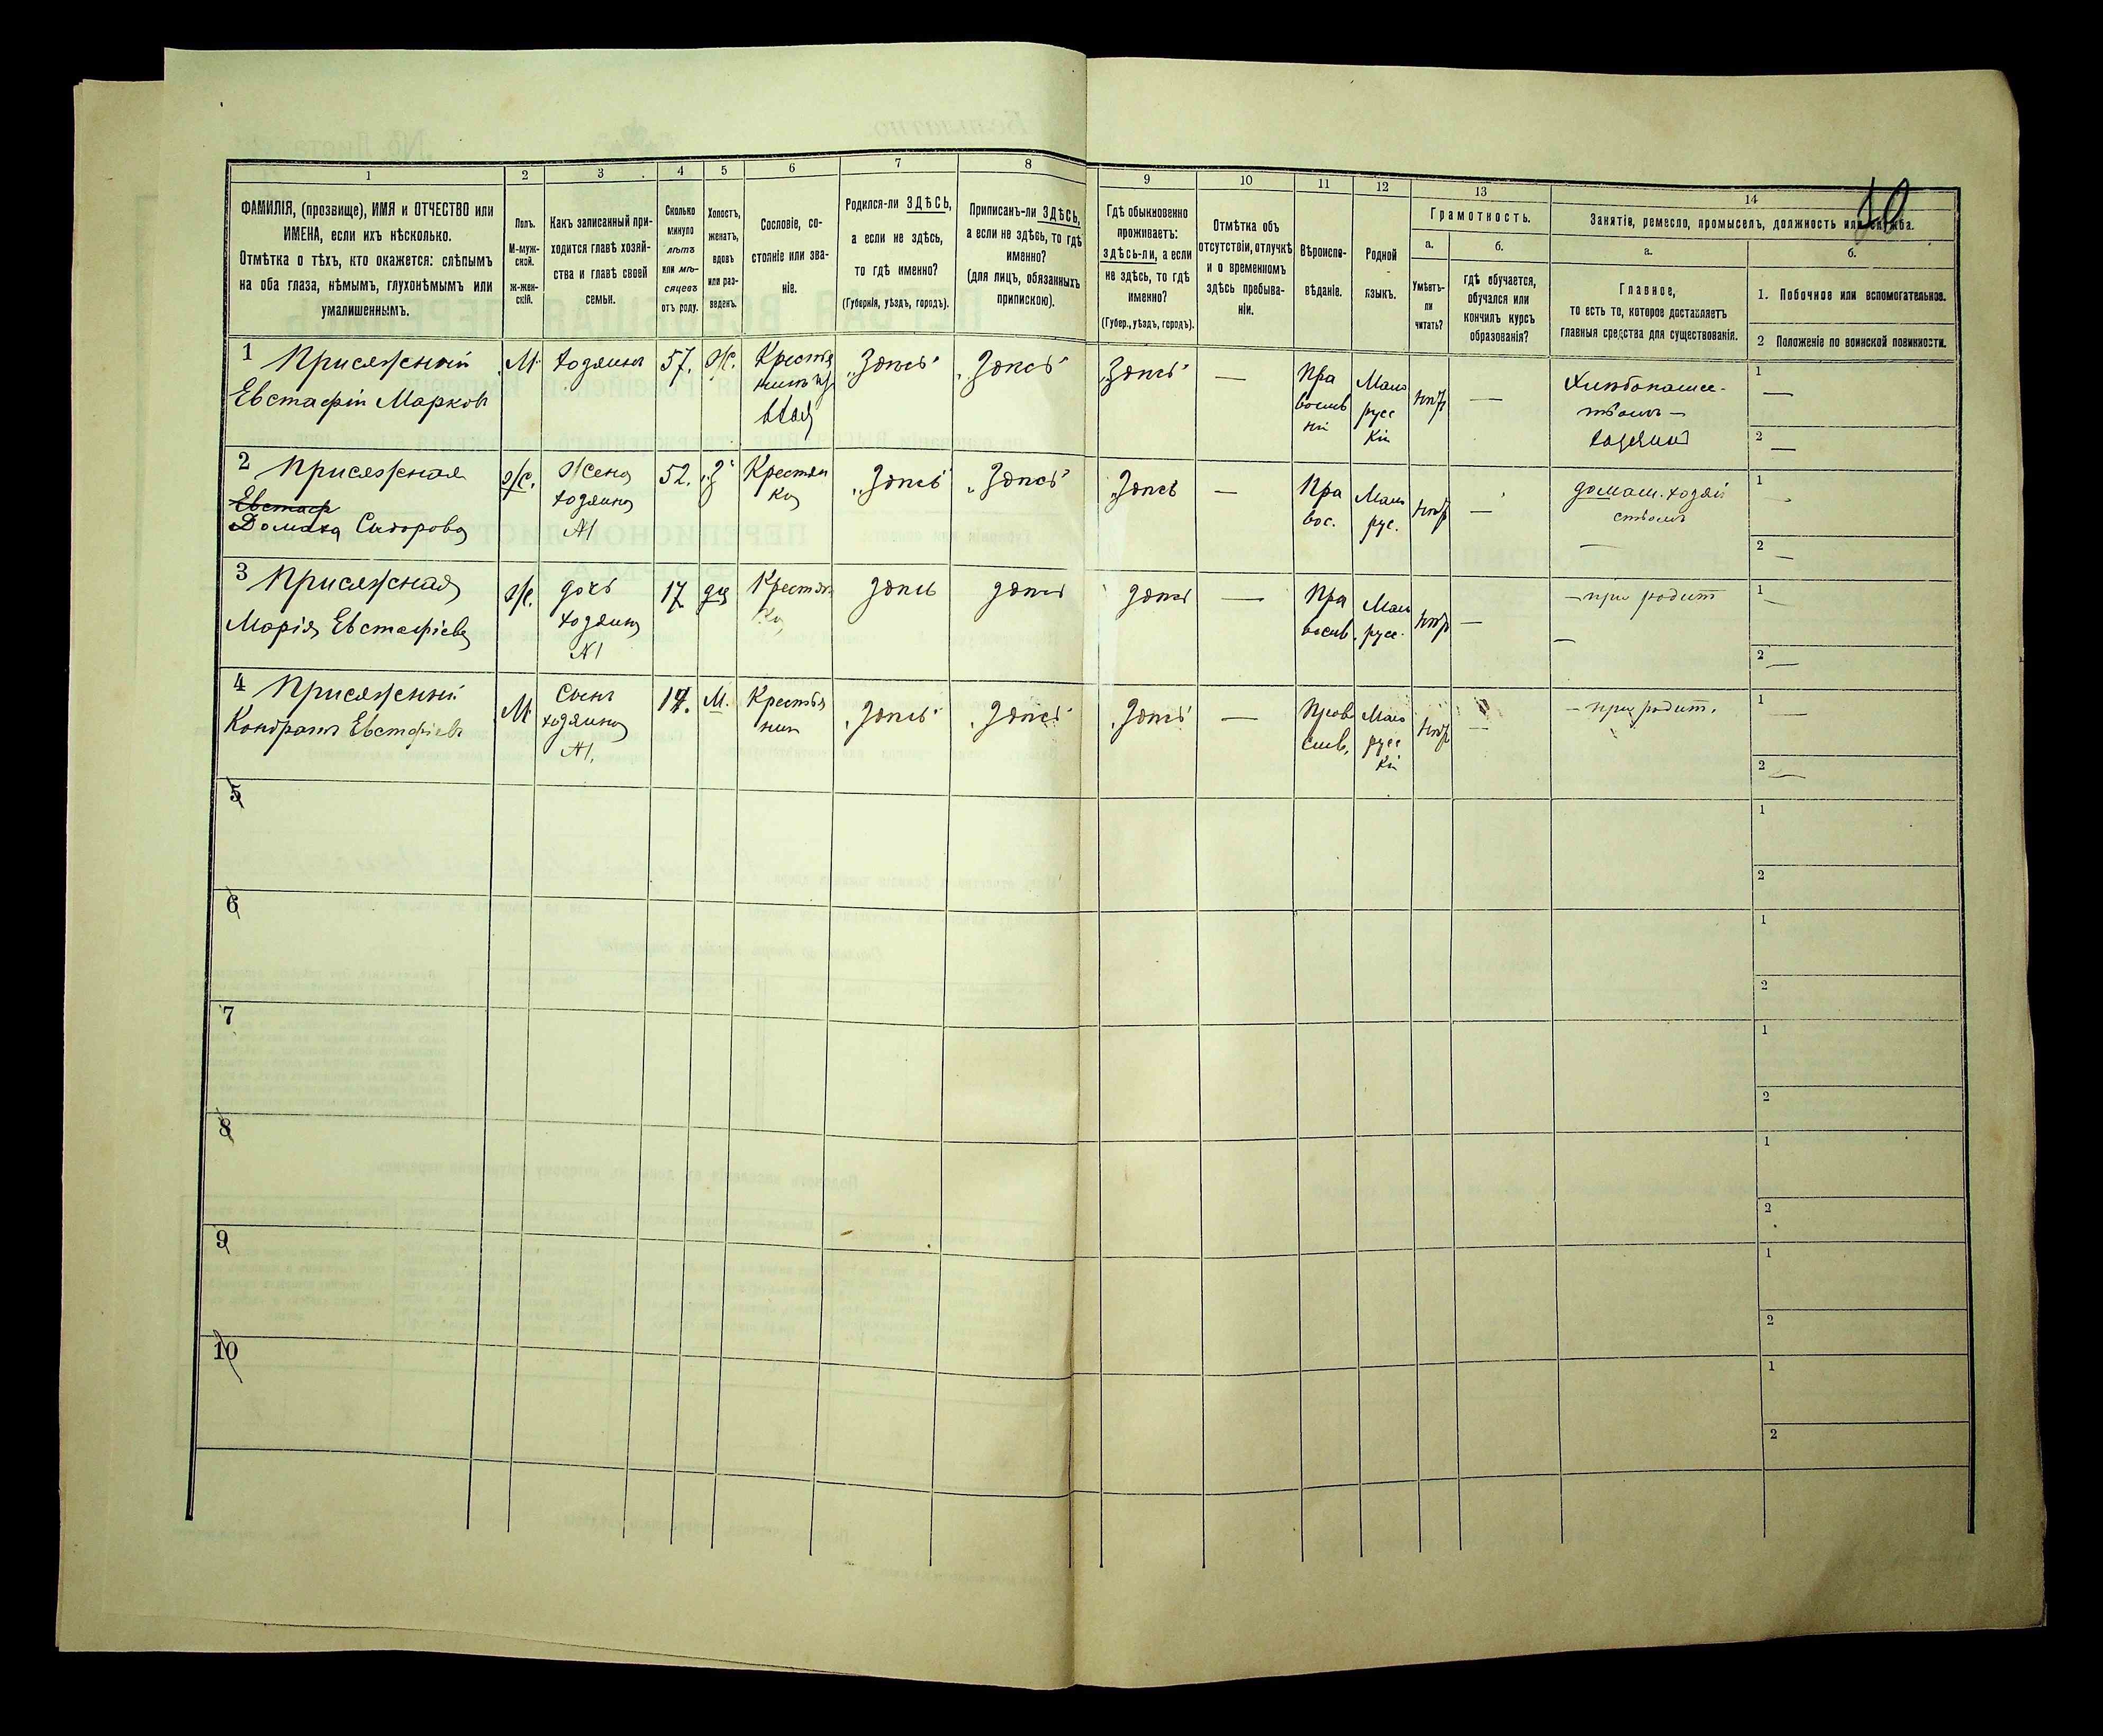 10
1 2 3 4 5 6 7 8 9 10 11 12 13 14
ФАМИЛІЯ, (прозвище), ИМЯ и ОТЧЕСТВО или
ИМЕНА, если ихъ нѣсколько.
Отмѣтка о тѣхъ, кто окажется: слѣпымъ
на оба глаза, нѣмымъ, глухонѣмымъ или
умалишеннымъ.
Полъ.
М-муж-
ской.
ж-жен-
скій.
Какъ записанный при-
ходится главѣ хозяй-
ства и главѣ своей
семьи.
Сколько
минуло
лѣтъ
или мѣ-
сяцевъ
отъ роду.
Холостъ,
женатъ,
вдовъ
или раз-
веденъ.
Сословіе, со-
стояніе или зва-
ніе.
Родился-ли ЗДѢСЬ,
а если не здѣсь,
то гдѣ именно?
(Губернія, уѣздъ, городъ).
Приписанъ-ли ЗДѢСЬ,
а если не здѣсь, то гдѣ
именно?
(для лицъ, обязанныхъ
припискою).
Гдѣ обыкновенно
проживаетъ:
здѣсь-ли, а если
не здѣсь, то гдѣ
именно?
(Губер., уѣздъ, городъ).
Отмѣтка объ
отсутствіи, отлучкѣ
и о временномъ
здѣсь пребыва-
ніи.
Вѣроиспо-
вѣданіе.
Родной
языкъ.
Грамотность.
а.
Умѣетъ-
ли
читать?
б.
гдѣ обучается,
обучался или
кончилъ курсъ
образованія?
Занятіе, ремесло, промыселъ, должность или служба.
а.
Главное,
то есть то, которое доставляетъ
главныя средства для существованія.
б.
1. Побочное или вспомогательное.
2 Положеніе по воинской повинности.
1 Присяжный
Евстафій Марковъ
М
хозяинъ
57.
Ж.
Крестья
нинъ
„Здѣсь"
„Здѣсь"
„Здѣсь"
—
Пра
восл
ный
Мало
русс
кій
нѣтъ
—
Хлебопашес-
твомъ —
хозяинъ
1 —
2 —
2 Присяжная
Евстаф
Домаха Сидорова
Ж.
Жена
хозяина
№1
52.
„З"
Крестьян
ка
„Здѣсь"
„Здѣсь"
„Здѣсь
—
Пра
вос.
Мало
рус.
нѣтъ
—
домаш. хозяй
ствомъ
—
1 —
2 —
3 Присяжная
Марія Евстафіева
Ж.
дочь
хозяина
№1
17
дѣв
Крестьян
ка
здѣсь
здѣсь
здѣсь
—
Пра
восл.
Мало
русс.
нѣтъ
—
— при родит
—
1 —
2 —
4 Присяжный
Кондратъ Евстафіевъ
М
Сынъ
хозяина
№1.
14.
М.
Крестья
нин
„Здѣсь"
„Здѣсь"
„Здѣсь"
—
Прав
слав.
Мало
русс
кій
нѣтъ
—
— при родит.
1 —
2 —
5
1
2
6
1
2
7
1
2
8
1
2
9
1
2
10
1
2